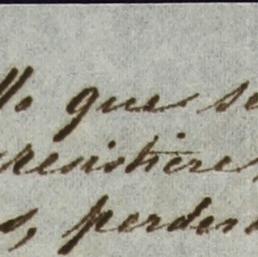 llo que se
resistiere
s, perder